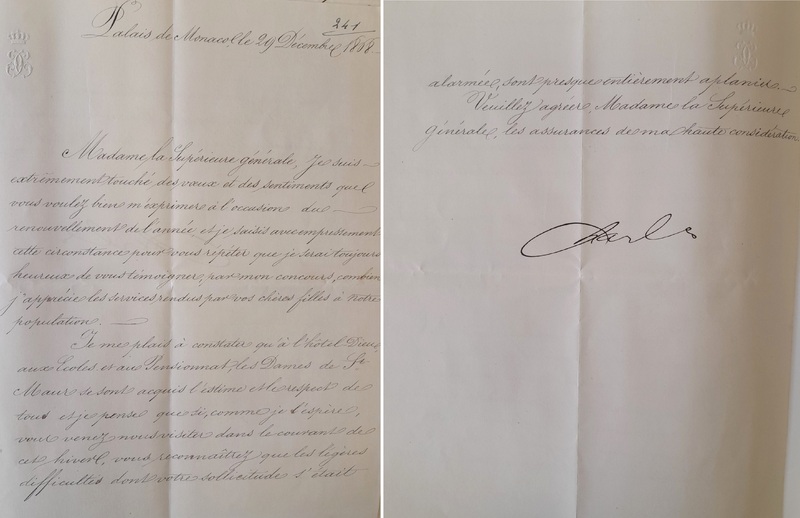 241
Palais de Monaco, le 29 Décembre 1888
Madame la Supérieure générale, Je suis
extrêmement touché des vœux et des sentiments que
vous voulez bien m'exprimer à l'occasion du
renouvellement de l'année et je saisis avec empressement
cette circonstance pour vous répéter que je serai toujours
heureux de vous témoigner, par mon concours, combien
j'apprécie les services rendus par vos chères filles à notre
population.
Je me plais à constater qu'à l'hôtel Dieu,
aux Ecoles et au Pensionnat, les Dames de St.
Maur se sont acquis l'estime et le respect de
tous et je pense que si, comme je l'espère,
vous venez nous visiter dans le courant de
cet hiver, vous reconnaîtrez que les légères
difficultés dont votre sollicitude s'était
alarmée, sont presque entièrement aplanies.
Veuillez agréer, Madame la Supérieure
générale, les assurances de ma haute considération
Charles